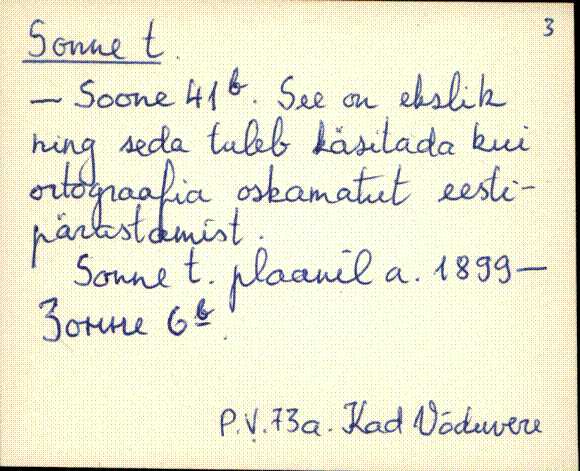 3
Sonne t.
— Soone 41ᵇ. See on ekslik
ning seda tuleb käsitada kui
ortograafia oskamatut eesti-
pärastamist.
Sonne t. plaanil a. 1899—
Зонне 6ᵇ.
P.V.73a. Kad Võduvere